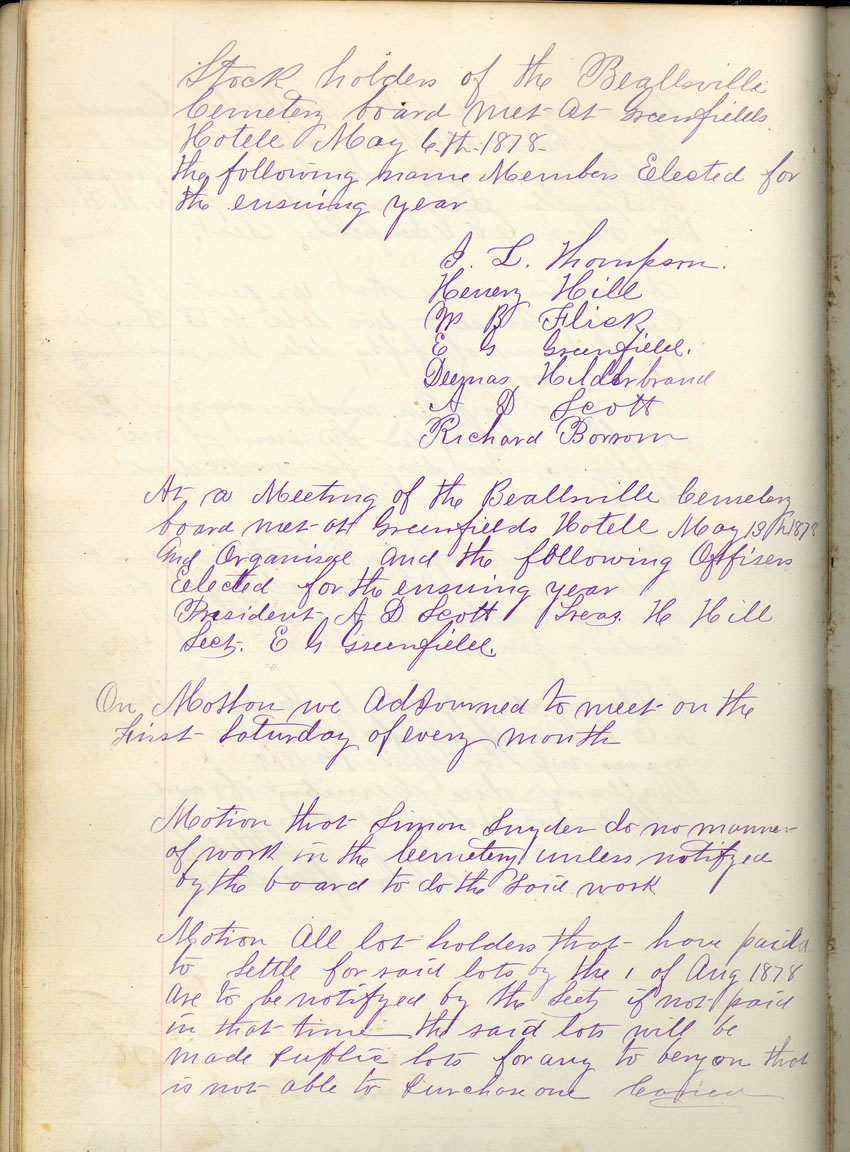 Stock holders of the Beallsville
Cemetery board met at Greenfields
Hotell May 6.th. 1878.
the following name Members Elected for
the ensuing year
J. L. Thompson.
Henery Hill
W B Flick
E G Greenfield.
Deemas Hilderbrand
A D Scott
Richard Borrom
At a Meeting of the Beallsville Cemetery
board met at Greenfields Hotell May 13th 1878
And Organise and the following Offisers
Elected for the ensuing year
President A D Scott Treas. H Hill
Sect. E G Greenfield.
On Motton we Adjourned to meet on the
First Saturday of every month
Motion that Simon Snyder do no manner
of work in the Cemetery unless notifyed
by the board to do the said work
Motion All lot holders that have
to Settle for said lots by the 1 of Aug 1878
are to be notifyed by the Secty if not paid
in that time the said lots will be
made public lots for any to bery on that
is not able to purchase one Caried